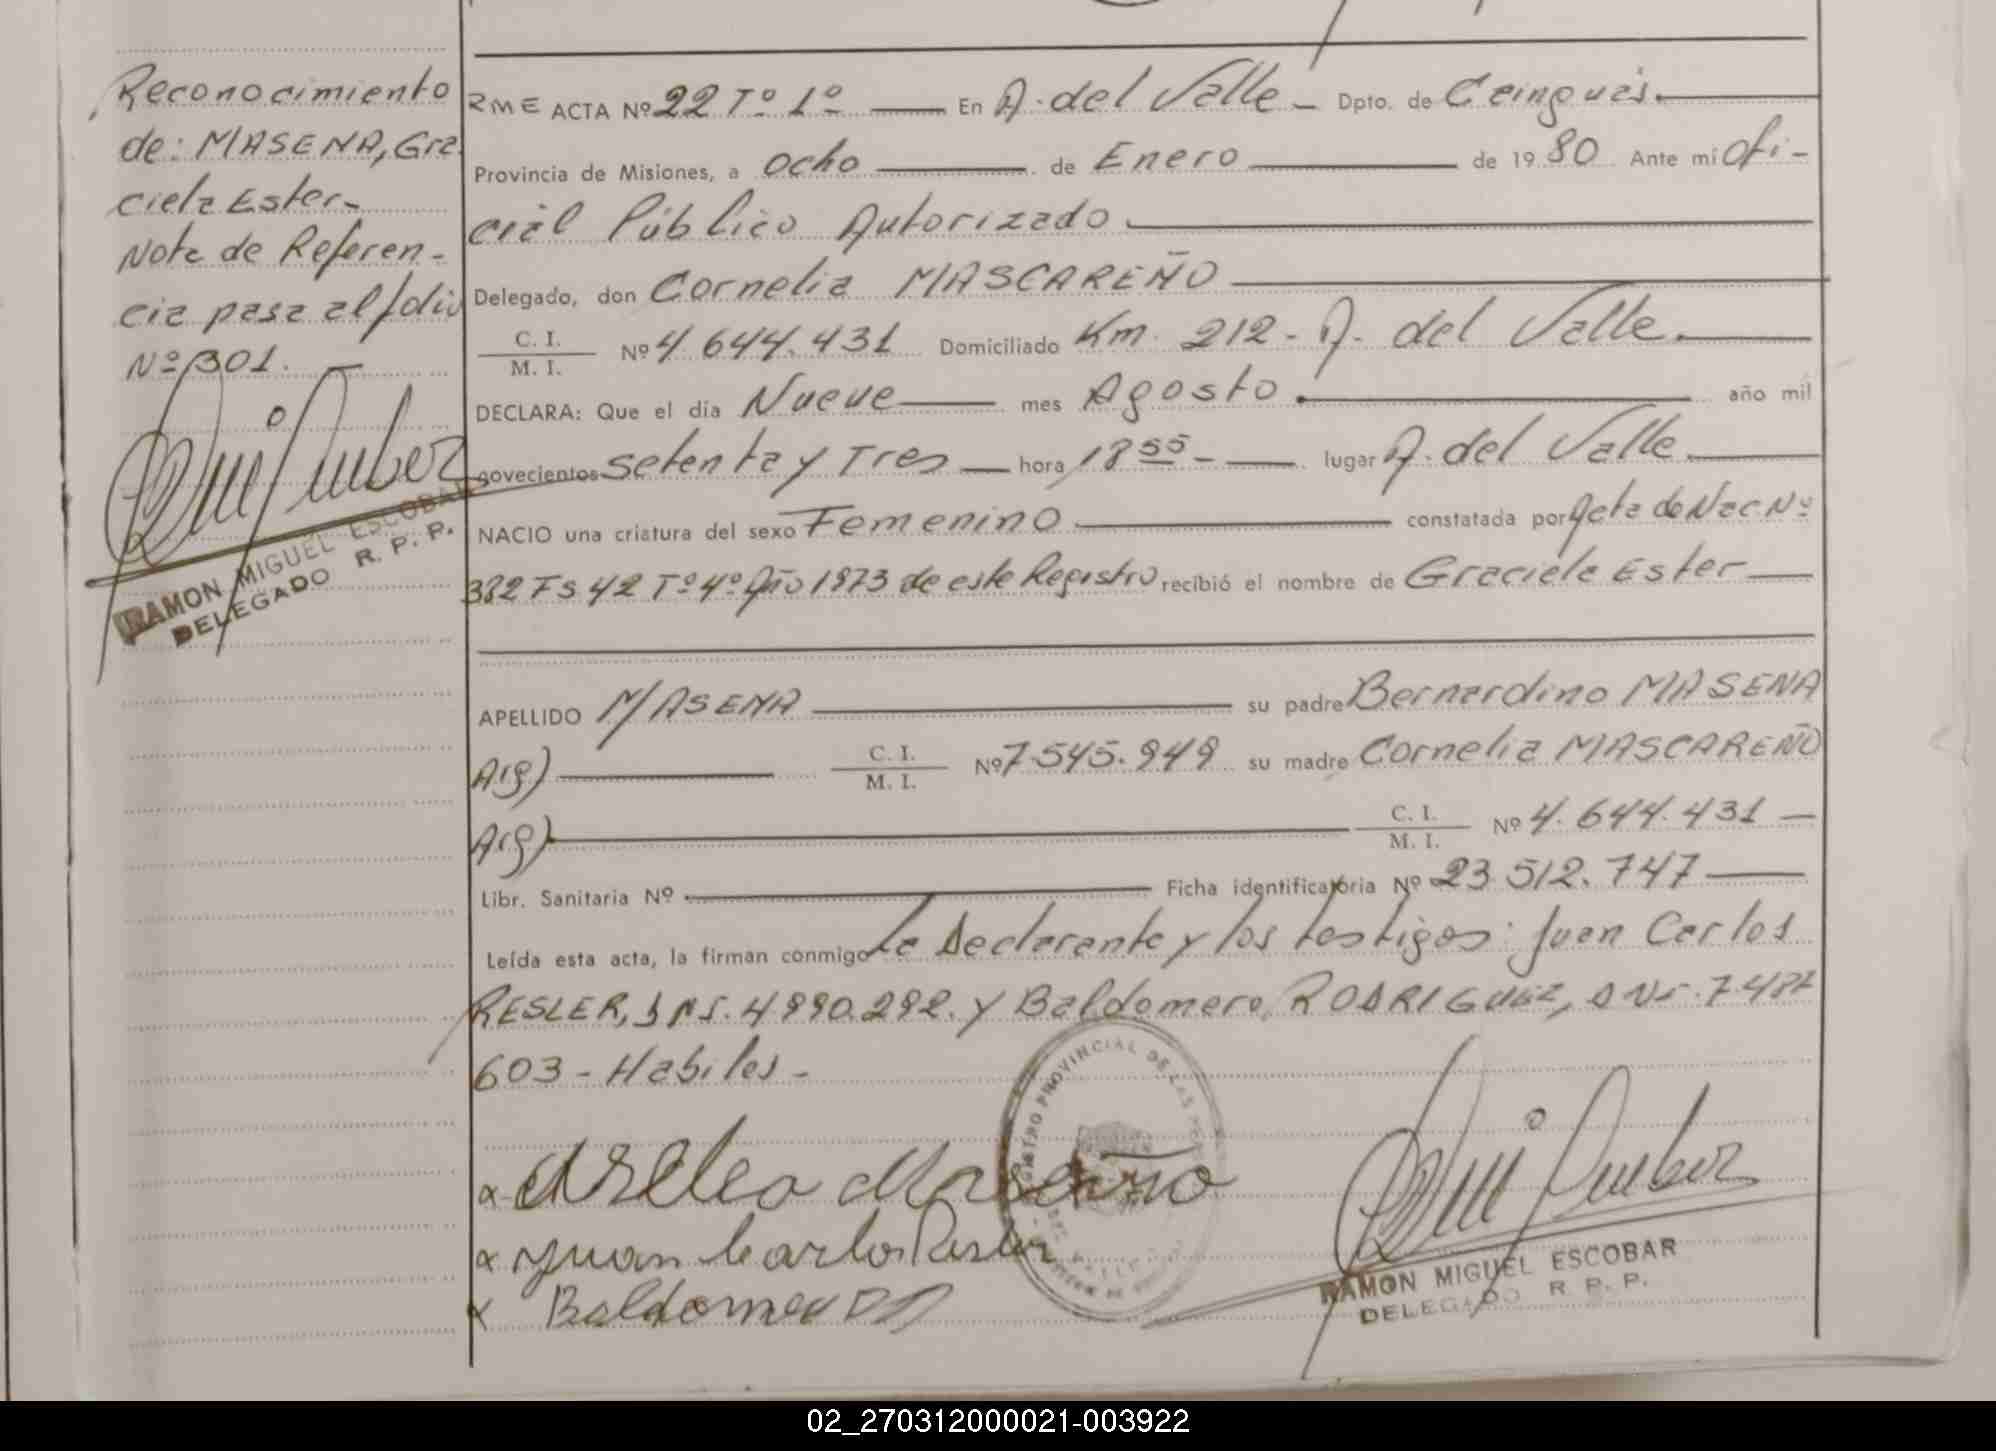 Reconocimiento
de: MASENA, Gra
ciela Ester-
Nota de Referen-
cia pasa al folio
Nº 301.
RAMON MIGUEL ESCOBAR
DELEGADO R. P. P.
RME ACTA Nº 22 Tº 1º En A. del Valle - Dpto. de Caingues.
Provincia de Misiones, a ocho de Enero de 1980 Ante mi Ofi-
cial Público Autorizado
Delegado, don Cornelia MASCAREÑO
C. I.
M. I. Nº 4 644.431 Domiciliado Km. 212 - A. del Valle.
DECLARA: Que el día Nueve mes Agosto año mil
novecientos setenta y Tres hora 18 55 - lugar A. del Valle
NACIO una criatura del sexo Femenino constatada por Acta de Nac Nº
382 Fs 42 Tº 4º Año 1973 de este Registro recibió el nombre de Graciela Ester
APELLIDO MASENA su padre Bernardino MASENA
Arg) C. I.
M. I. Nº 7.545.949 su madre Cornelia MASCAREÑO
Arg) C. I.
M. I. Nº 4.644.431 -
Libr. Sanitaria Nº Ficha identificatoria Nº 23 512.747
Leída esta acta, la firman conmigo La Declarante y los testigos: Juan Carlos
RESLER, DNI. 4990.292. y Baldomero RODRIGUEZ, DNI. 7.487
603 - Habiles -
Juan Carlos Resler
Baldomero
RAMON MIGUEL ESCOBAR
DELEGADO R. P. P.
02_270312000021-003922